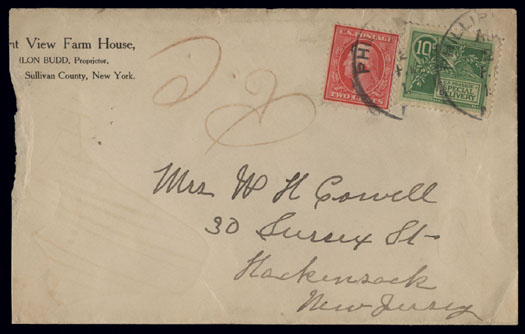 nt View Farm House,
ILON BUDD, Proprietor,
Sullivan County, New York.
U.S. POSTAGE
TWO CENTS
10
SPECIAL
DELIVERY
PHI
Mrs W H Cowell
30 Sussex St-
Hackensack
New Jersey